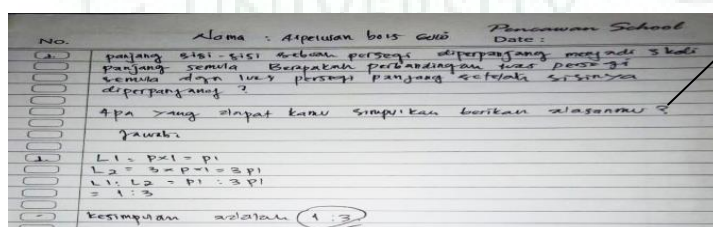 Pencawan School
No. Nama : Aspelusan bois Gulö Date :
1. panjang sisi-sisi sebuah persegi diperpanjang menjadi 3 kali
panjang semula Berapakah perbandingan luas persegi
semula dgn luas persegi panjang setelah sisinya
diperpanjang ?
Apa yang dapat kamu simpulkan berikan alasanmu ?
Jawab:
1. L1 = P×1 = P1
L2 = 3×P×1 = 3P1
L1 : L2 = P1 : 3P1
= 1 : 3
- kesimpulan adalah 1 : 3